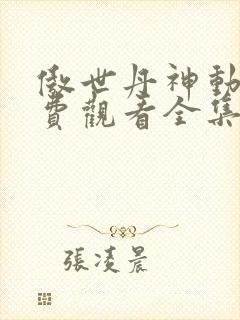 傲世丹神動
費觀看全集
張凌晨